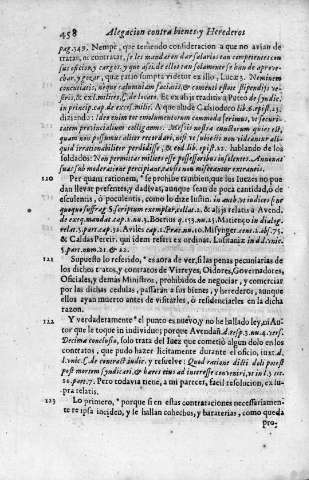 458 Alegacion contra bienes, y Herederos
pag. 342. Nempè, que teniendo consideracion a que no avian de
tratar, ni contratar, se les mandaren dar salarios tan competentes con
sus oficios, y cargos, y que assi de ellos tan solamente se han de aprove-
char, y gozar, quæ ratio sumpta videtur ex illo, Lucæ 3. Neminem
concutiatis, neque calumniam faciatis, & contenti estote stipendijs ve-
stris, & ex l. milites, C. de locat. Et ex alijs traditiva Puteo de syndic.
in princip. cap. de excess. milit. A que alude Casiodoro lib. epist. 13.
diziendo: Idee enim tot emolumentorum commoda serimus, ut securi-
tatem provincialium colligamus. Messis nostra cunctorum quies est,
quam non possumus aliter recordari, nisi ut subiecti non videantur ali-
quid irrationabiliter perdidisse, & eod. lib. epist. 22. hablando de los
soldados: Non permittas milites esse possessoribus insolentes. Annonas
suas sub moderatione percipiant,
120 Per quam rationem, se prohibe tambien, que los Iuezes no pue-
dan llevar presentes, y dadivas, aunque sean de poca cantidad, ò de
esculentis, ò poculentis, como lo dize Iustin. in auth.
5. scriptum exemplar, & alijs relatis Avend.
de exeq. mandat. cap. Boerius q. 153. Matienço in dialog.
relat. 3. part. cap. Aviles cap. 1. Præt. Misynger. cent.
& Caldas Pereir. qui idem refert ex ordinat. Lusitaniæ in
3. part. num. 21.
121 Supuesto lo referido, es aora de ver, si las penas pecuniarias de
los dichos tratos, y contratos de Virreyes, Oidores, Governadores,
Oficiales, y demàs Ministros, prohibidos de negociar, y comerciar
por las dichas cedulas, passaràn a sus bienes, y herederos, aunque
ellos ayan muerto antes de visitarles, ò residenciarles en la dicha
razon.
122 Y verdaderamente el punto es nuevo, y no he hallado ley, ni Au-
tor que le toque in individuo; porque Avendañ. d. resp. 3. nu. 4. vers.
Decima conclusio, solo trata del Iuez que cometiò algun dolo en los
contratos, que pudo hazer licitamente durante el oficio, iuxta d.
l. vnic. C. de contract. iudic. y resuelve: Quod ratione dicti doli potest
post mortem syndicari, & hæres eius ad interesse conveniri,
Pero todavia tiene, a mi parecer, facil resolucion, ex su-
pra relatis.
123 Lo primero, porque si en estas contrataciones necessariamen-
te re ipsa inciden, y se hallan cohechos, y baraterias, como queda
pro-